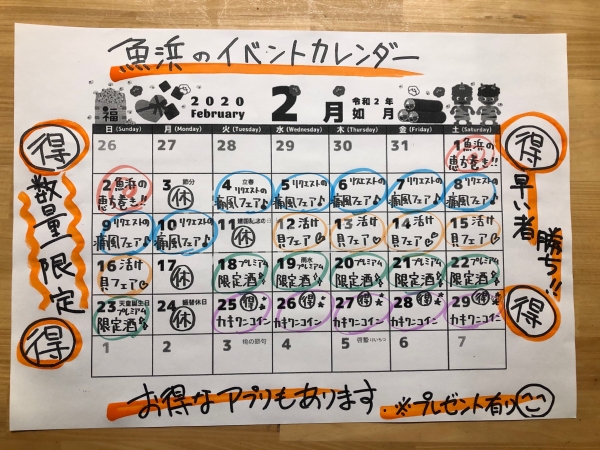 魚浜のイベントカレンダー
福
2020
February
2月
令和2年
如月
日(Sunday) 月(Monday) 火(Tuesday) 水(Wednesday) 木(Thursday) 金(Friday) 土(Saturday)
26 27 28 29 30 31 1 魚浜の
恵方巻き!!
2 魚浜の 3 節分 4 立春 リクエストの 5 リクエストの 6 リクエストの 7 リクエストの 8 リクエストの
恵方巻き!! 休 痛風フェア♪ 痛風フェア♪ 痛風フェア♪ 痛風フェア♪ 痛風フェア♪
9 リクエストの 10 リクエストの 11 建国記念の日 12 活け 13 活け 14 活け 15 活け
痛風フェア♪ 痛風フェア♪ 休 貝フェア 貝フェア 貝フェア 貝フェア
16 活け 17 18 プレミアム 19 雨水 プレミアム 20 プレミアム 21 プレミアム 22 プレミアム
貝フェア 休 限定酒 限定酒 限定酒 限定酒 限定酒
23 天皇誕生日 プレミアム 24 振替休日 25 得 26 得 27 得 28 得 29 得
限定酒 休 カキワンコイン カキワンコイン カキワンコイン カキワンコイン カキワンコイン
1 2 3 桃の節句 4 5 啓蟄(けいちつ) 6 7
得
数量限定
得
得
早い者
勝ち!!
得
お得なアプリもあります
※プレゼント有り